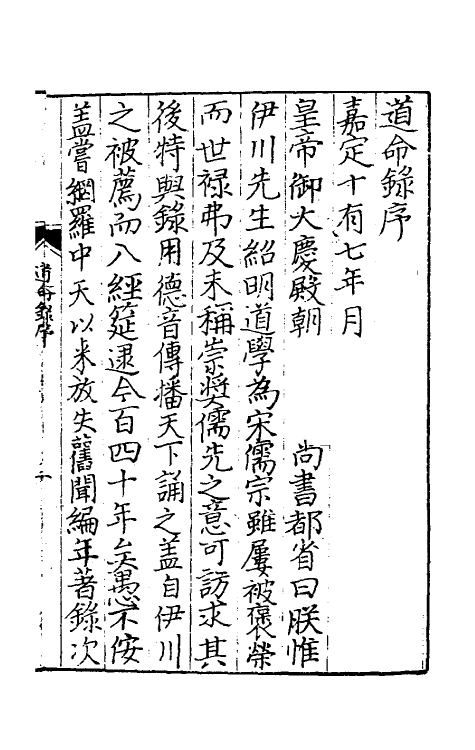 道命錄序
嘉定十有七年月
皇帝御大慶殿朝　尚書都省曰朕惟
伊川先生紹明道學為宋儒宗雖屢被褒榮
而世祿弗及未稱崇獎儒先之意可訪求其
後特與錄用德音傳播天下誦之盖自伊川
之被薦而入經筵逮今百四十年矣愚不佞
盖嘗網羅中天以来放失舊聞編年著錄次
道命錄序